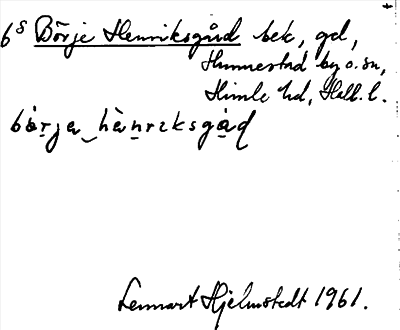 6s Börje Henriksgård bek, gd,
Hunnestad by o. sn,
Himle hd, Hall. l.
bö̀rja‿hànriksgåd
Lennart Hjelmstedt 1961.